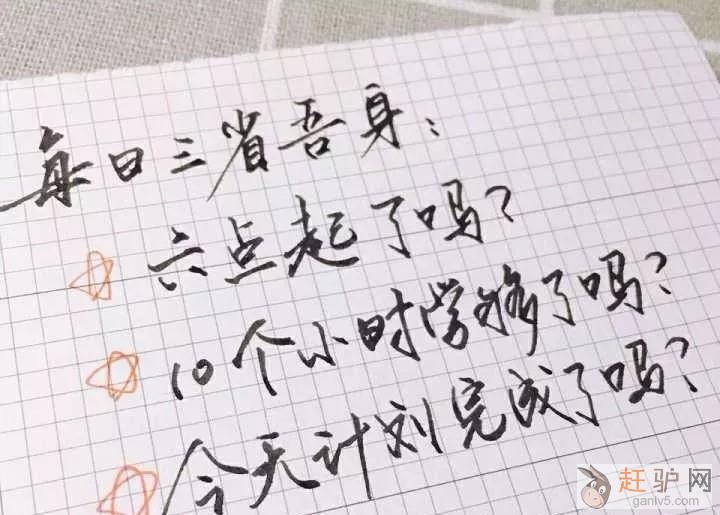 每日三省吾身：
六点起了吗？
10个小时学够了吗？
今天计划完成了吗？
赶驴网
ganlv5.com